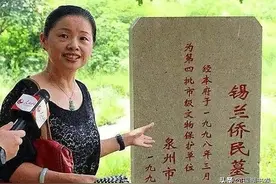 锡兰侨民墓
经本府于一九九八年月
为第四批市级文物保护单位
泉州市
一九